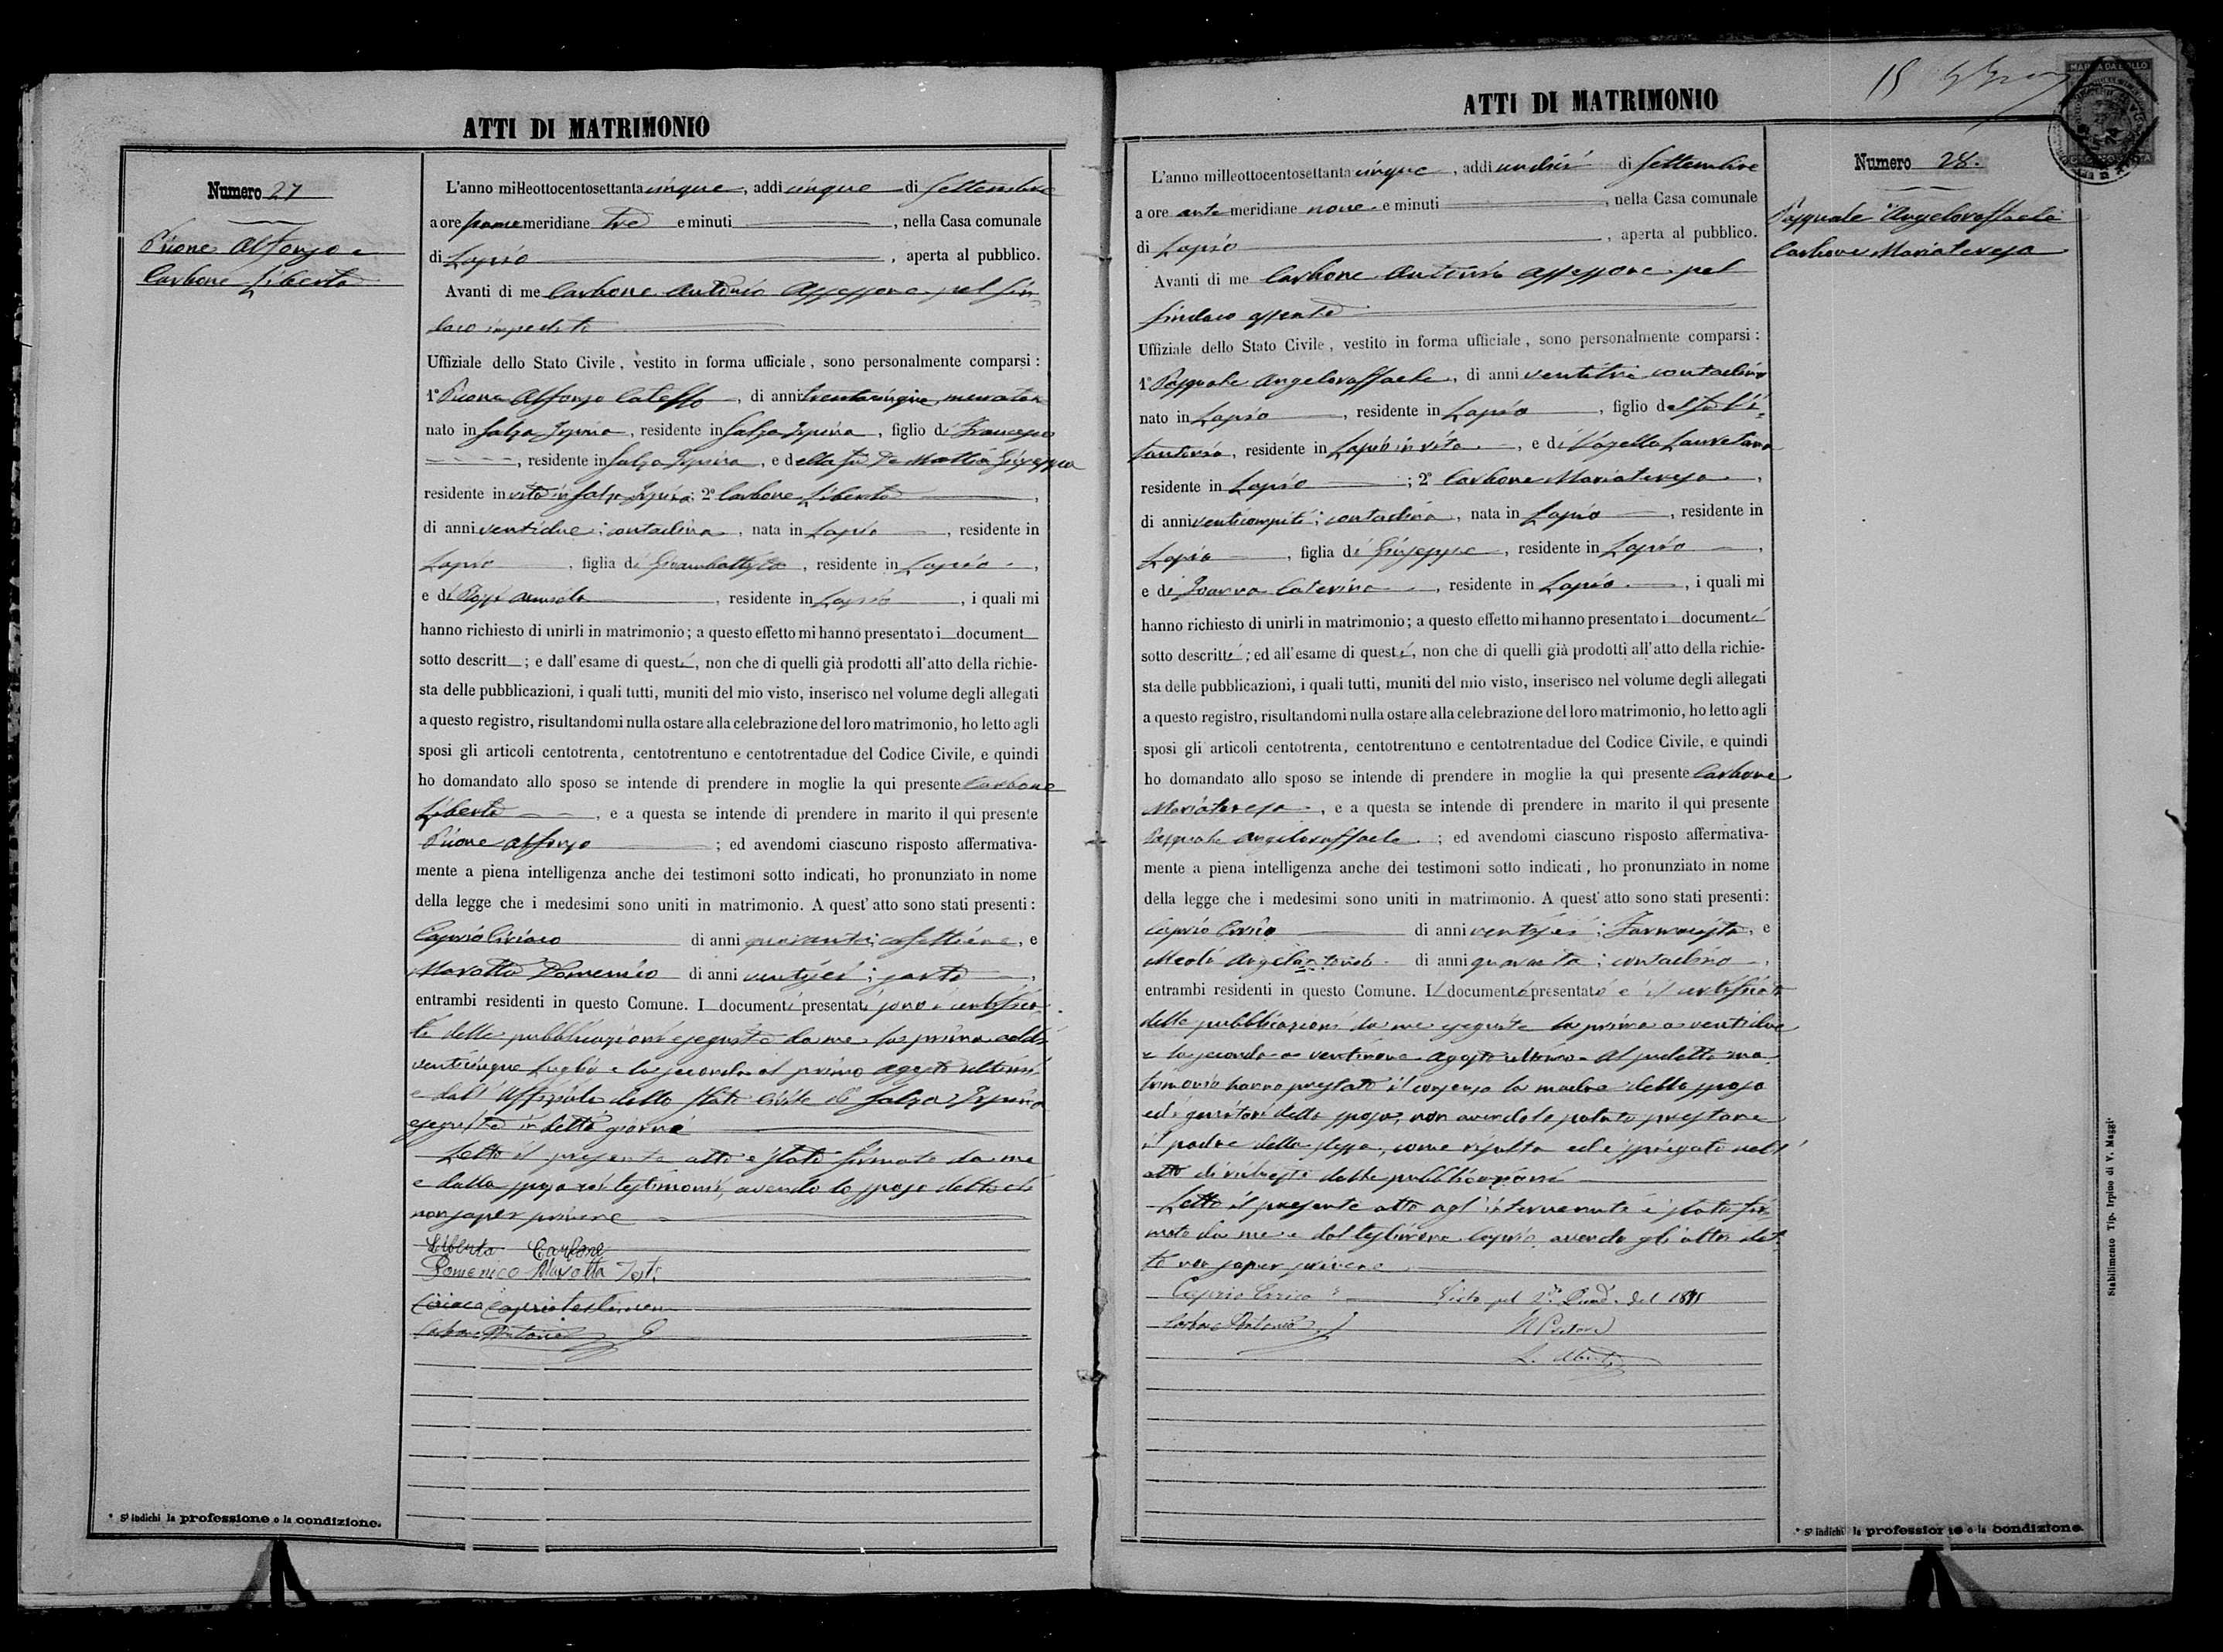 ATTI DI MATRIMONIO
Numero 27
Alfonso e
Carbone Liberta
L'anno milleottocentosettanta cinque, addi cinque di Settembre
a ore pomeridiane tre e minuti, nella Casa comunale
di Lapio, aperta al pubblico.
Avanti di me Carbone Antonio Assessore pel Sin-
daco impedito
Uffiziale dello Stato Civile, vestito in forma ufficiale, sono personalmente comparsi:
1° Alfonso, di anni trentacinque, muratore
nato in Salza Irpina, residente in Salza Irpina, figlio di Francesco
, residente in Salza Irpina, e della fu De Mattia Giuseppa
residente in vita in Salza Irpina; 2° Carbone Liberta,
di anni ventidue; contadina, nata in Lapio, residente in
Lapio, figlia di Giambattista, residente in Lapio,
e di, residente in Lapio, i quali mi
hanno richiesto di unirli in matrimonio; a questo effetto mi hanno presentato i document
sotto descritt; e dall'esame di questi, non che di quelli già prodotti all'atto della richie-
sta delle pubblicazioni, i quali tutti, muniti del mio visto, inserisco nel volume degli allegati
a questo registro, risultandomi nulla ostare alla celebrazione del loro matrimonio, ho letto agli
sposi gli articoli centotrenta, centotrentuno e centotrentadue del Codice Civile, e quindi
ho domandato allo sposo se intende di prendere in moglie la qui presente Carbone
Liberta, e a questa se intende di prendere in marito il qui presente
Alfonso; ed avendomi ciascuno risposto affermativa-
mente a piena intelligenza anche dei testimoni sotto indicati, ho pronunziato in nome
della legge che i medesimi sono uniti in matrimonio. A quest'atto sono stati presenti:
Caprio Ciriaco di anni quaranta; caffettiere, e
Marotta Domenico di anni ventisei; sarto,
entrambi residenti in questo Comune. I documenti presentati sono i certifica-
ti delle pubblicazioni eseguite da me la prima addi
venticinque Luglio e la seconda al primo Agosto ultimi
e dall'Uffiziale dello Stato Civile di Salza Irpina
eseguite in detti giorni
Letto il presente atto è stato firmato da me
e dalla sposa e testimoni, avendo lo sposo detto di
non saper scrivere
Liberta Carbone
Domenico Marotta Testi
Ciriaco Caprio testimone
Carbone Antonio
* Si indichi la professione o la condizione.
ATTI DI MATRIMONIO
15
MARCA DA BOLLO
Numero 28.
Pasquale Angeloraffaele
Carbone Mariateresa
L'anno milleottocentosettanta cinque, addi undici di Settembre
a ore antemeridiane nove e minuti, nella Casa comunale
di Lapio, aperta al pubblico.
Avanti di me Carbone Antonio Assessore pel
Sindaco assente
Uffiziale dello Stato Civile, vestito in forma ufficiale, sono personalmente comparsi:
1° Pasquale Angeloraffaele, di anni ventitrè contadino
nato in Lapio, residente in Lapio, figlio del fu Vi-
, residente in Lapio in vita, e di Loretana
residente in Lapio; 2° Carbone Mariateresa,
di anni venti compiti; contadina, nata in Lapio, residente in
Lapio, figlia di Giuseppe, residente in Lapio,
e di Caterina, residente in Lapio, i quali mi
hanno richiesto di unirli in matrimonio; a questo effetto mi hanno presentato i documenti
sotto descritti; ed all'esame di questi, non che di quelli già prodotti all'atto della richie-
sta delle pubblicazioni, i quali tutti, muniti del mio visto, inserisco nel volume degli allegati
a questo registro, risultandomi nulla ostare alla celebrazione del loro matrimonio, ho letto agli
sposi gli articoli centotrenta, centotrentuno e centotrentadue del Codice Civile, e quindi
ho domandato allo sposo se intende di prendere in moglie la qui presente Carbone
Mariateresa, e a questa se intende di prendere in marito il qui presente
Pasquale Angeloraffaele; ed avendomi ciascuno risposto affermativa-
mente a piena intelligenza anche dei testimoni sotto indicati, ho pronunziato in nome
della legge che i medesimi sono uniti in matrimonio. A quest'atto sono stati presenti:
Caprio Errico di anni ventisei; Farmacista, e
Meoli Angelantonio di anni quaranta; contadino,
entrambi residenti in questo Comune. Il documento presentato è il certificato
delle pubblicazioni da me eseguite la prima a ventidue
e la seconda a ventinove Agosto ultimo. Al predetto ma-
trimonio hanno prestato il consenso la madre dello sposo
ed i genitori della sposa, non avendolo potuto prestare
il padre dello stesso, come risulta ed è spiegato nell'
atto di richiesta delle pubblicazioni
Letto il presente atto agl'intervenuti è stato fir-
mato da me e dal testimone Caprio avendo gli altri det-
to non saper scrivere
Caprio Errico
Visto pel 2° Quad. del 1875
Carbone Antonio
Il Pretore
* Si indichi la professione o la condizione.
Stabilimento Tip. Irpino di V. Maggi